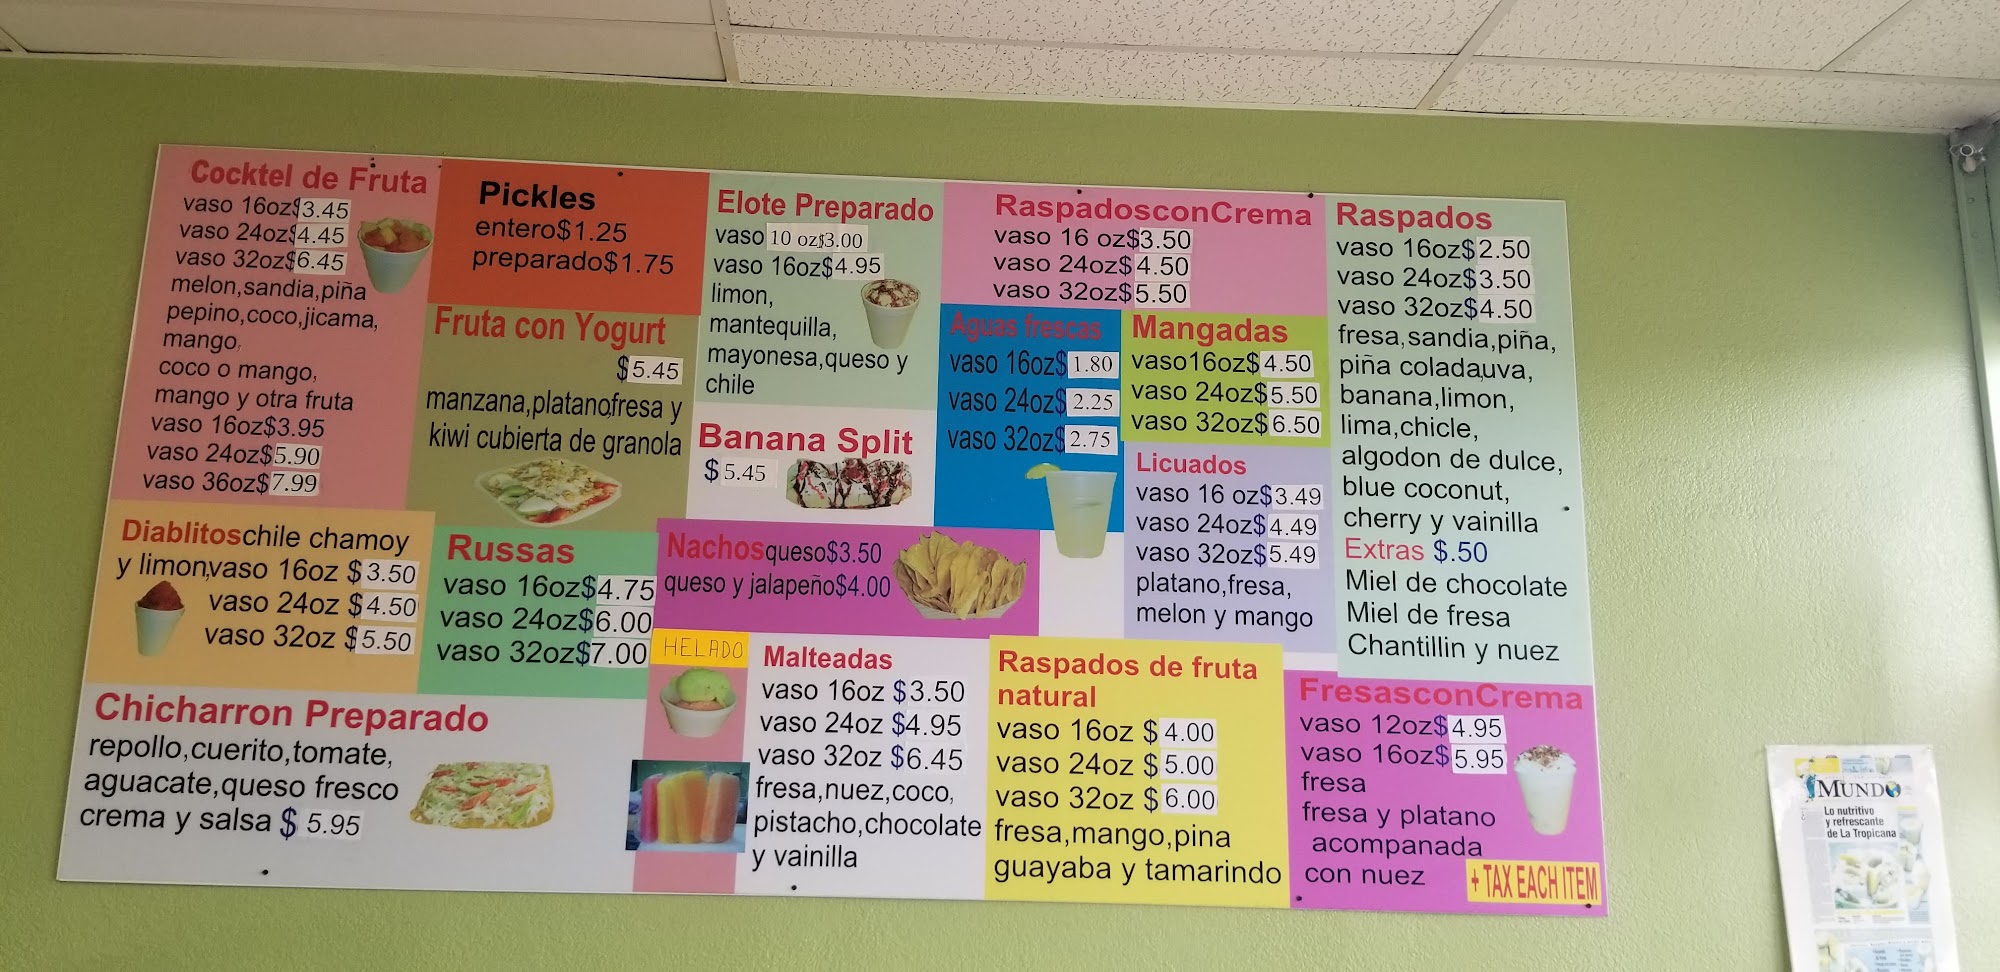 Cocktel de Fruta
vaso 16oz$3.45
vaso 24oz$4.45
vaso 32oz$6.45
melon,sandia,piña
pepino,coco,jicama,
mango,
coco o mango,
mango y otra fruta
vaso 16oz$3.95
vaso 24oz$5.90
vaso 36oz$7.99
Pickles
entero$1.25
preparado$1.75
Fruta con Yogurt
$5.45
manzana,platano,fresa y
kiwi cubierta de granola
Elote Preparado
vaso 10 oz$3.00
vaso 16oz$4.95
limon,
mantequilla,
mayonesa,queso y
chile
Banana Split
$5.45
RaspadosconCrema
vaso 16 oz$3.50
vaso 24oz$4.50
vaso 32oz$5.50
Aguas frescas
vaso 16oz$1.80
vaso 24oz$2.25
vaso 32oz$2.75
Mangadas
vaso16oz$4.50
vaso 24oz$5.50
vaso 32oz$6.50
Licuados
vaso 16 oz$3.49
vaso 24oz$4.49
vaso 32oz$5.49
platano,fresa,
melon y mango
Raspados
vaso 16oz$2.50
vaso 24oz$3.50
vaso 32oz$4.50
fresa,sandia,piña,
piña colada,uva,
banana,limon,
lima,chicle,
algodon de dulce,
blue coconut,
cherry y vainilla
Extras $.50
Miel de chocolate
Miel de fresa
Chantillin y nuez
Diablitos chile chamoy
y limon,vaso 16oz $3.50
vaso 24oz $4.50
vaso 32oz $5.50
Russas
vaso 16oz$4.75
vaso 24oz$6.00
vaso 32oz$7.00
Nachos queso$3.50
queso y jalapeño$4.00
Chicharron Preparado
repollo,cuerito,tomate,
aguacate,queso fresco
crema y salsa $ 5.95
HELADO
Malteadas
vaso 16oz $3.50
vaso 24oz $4.95
vaso 32oz $6.45
fresa,nuez,coco,
pistacho,chocolate
y vainilla
Raspados de fruta
natural
vaso 16oz $4.00
vaso 24oz $5.00
vaso 32oz $6.00
fresa,mango,pina
guayaba y tamarindo
FresasconCrema
vaso 12oz$4.95
vaso 16oz$5.95
fresa
fresa y platano
acompanada
con nuez
+ TAX EACH ITEM
MUNDO
Lo nutritivo
y refrescante
de La Tropicana